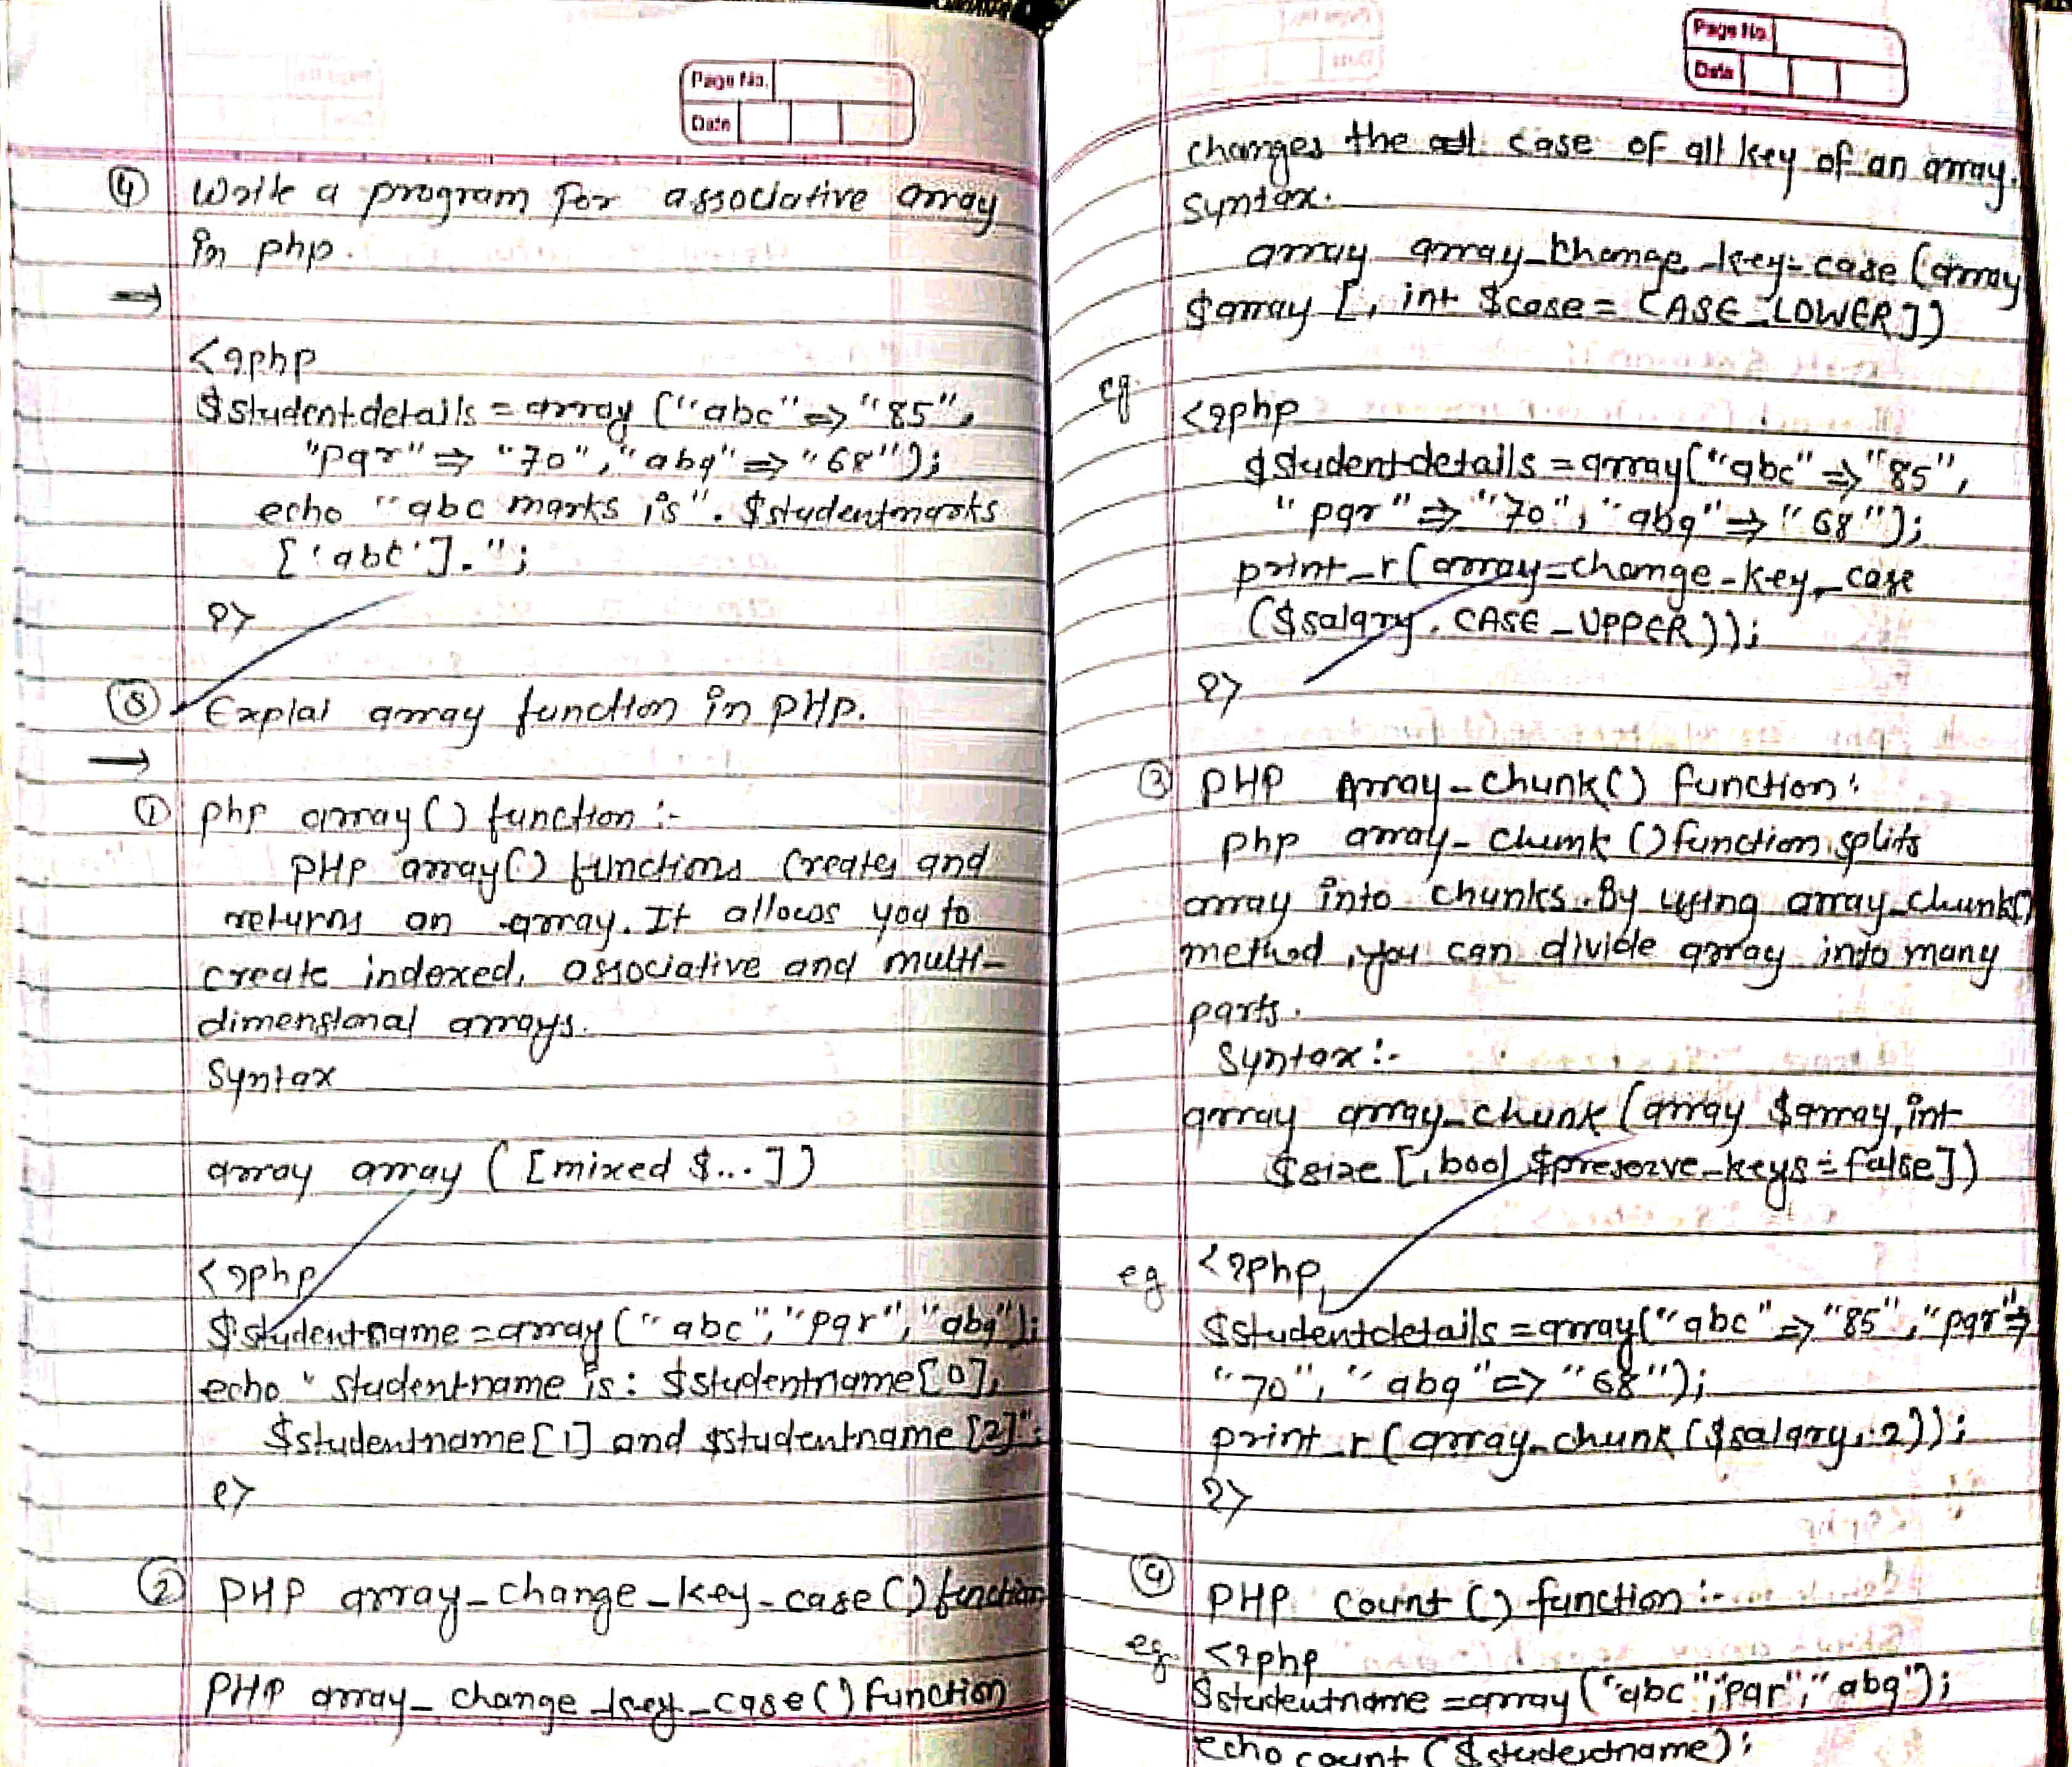 Page No.
Date
④ Write a program for associative array
in php.
→
<?php
$studentdetails = array ("abc" => "85",
"pqr" => "70", "abq" => "68");
echo "abc marks is". $studentmarks
['abc'].";
?>
⑤ Explai array function in PHP.
→
① php array() function :-
PHP array() functions creates and
returns an array. It allows you to
create indexed, associative and multi-
dimensional arrays.
Syntax
array array ([mixed $...])
<?php
$studentname = array ("abc", "pqr", "abq");
echo "studentname is: $studentname[0],
$studentname[1] and $studentname[2]";
?>
② PHP array_change_key_case() function
PHP array_change_key_case() function
Page No.
Date
changes the case of all key of an array.
syntax.
array array_change_key_case (array
$array [, int $case = CASE_LOWER])
eg. <?php
$studentdetails = array("abc" => "85",
"pqr" => "70", "abq" => "68");
print_r(array_change_key_case
($salary, CASE_UPPER));
?>
③ PHP Array_chunk() function:
php array_chunk() function splits
array into chunks. By using array_chunk()
method, you can divide array into many
parts.
Syntax:-
array array_chunk (array $array, int
$size [, bool $preserve_keys = false])
eg <?php
$studentdetails = array("abc" => "85", "pqr" =>
"70", "abq" => "68");
print_r (array_chunk ($salary, 2));
?>
④ PHP count () function :-
eg. <?php
$studentname = array ("abc", "pqr", "abq");
echo count ($studentname);